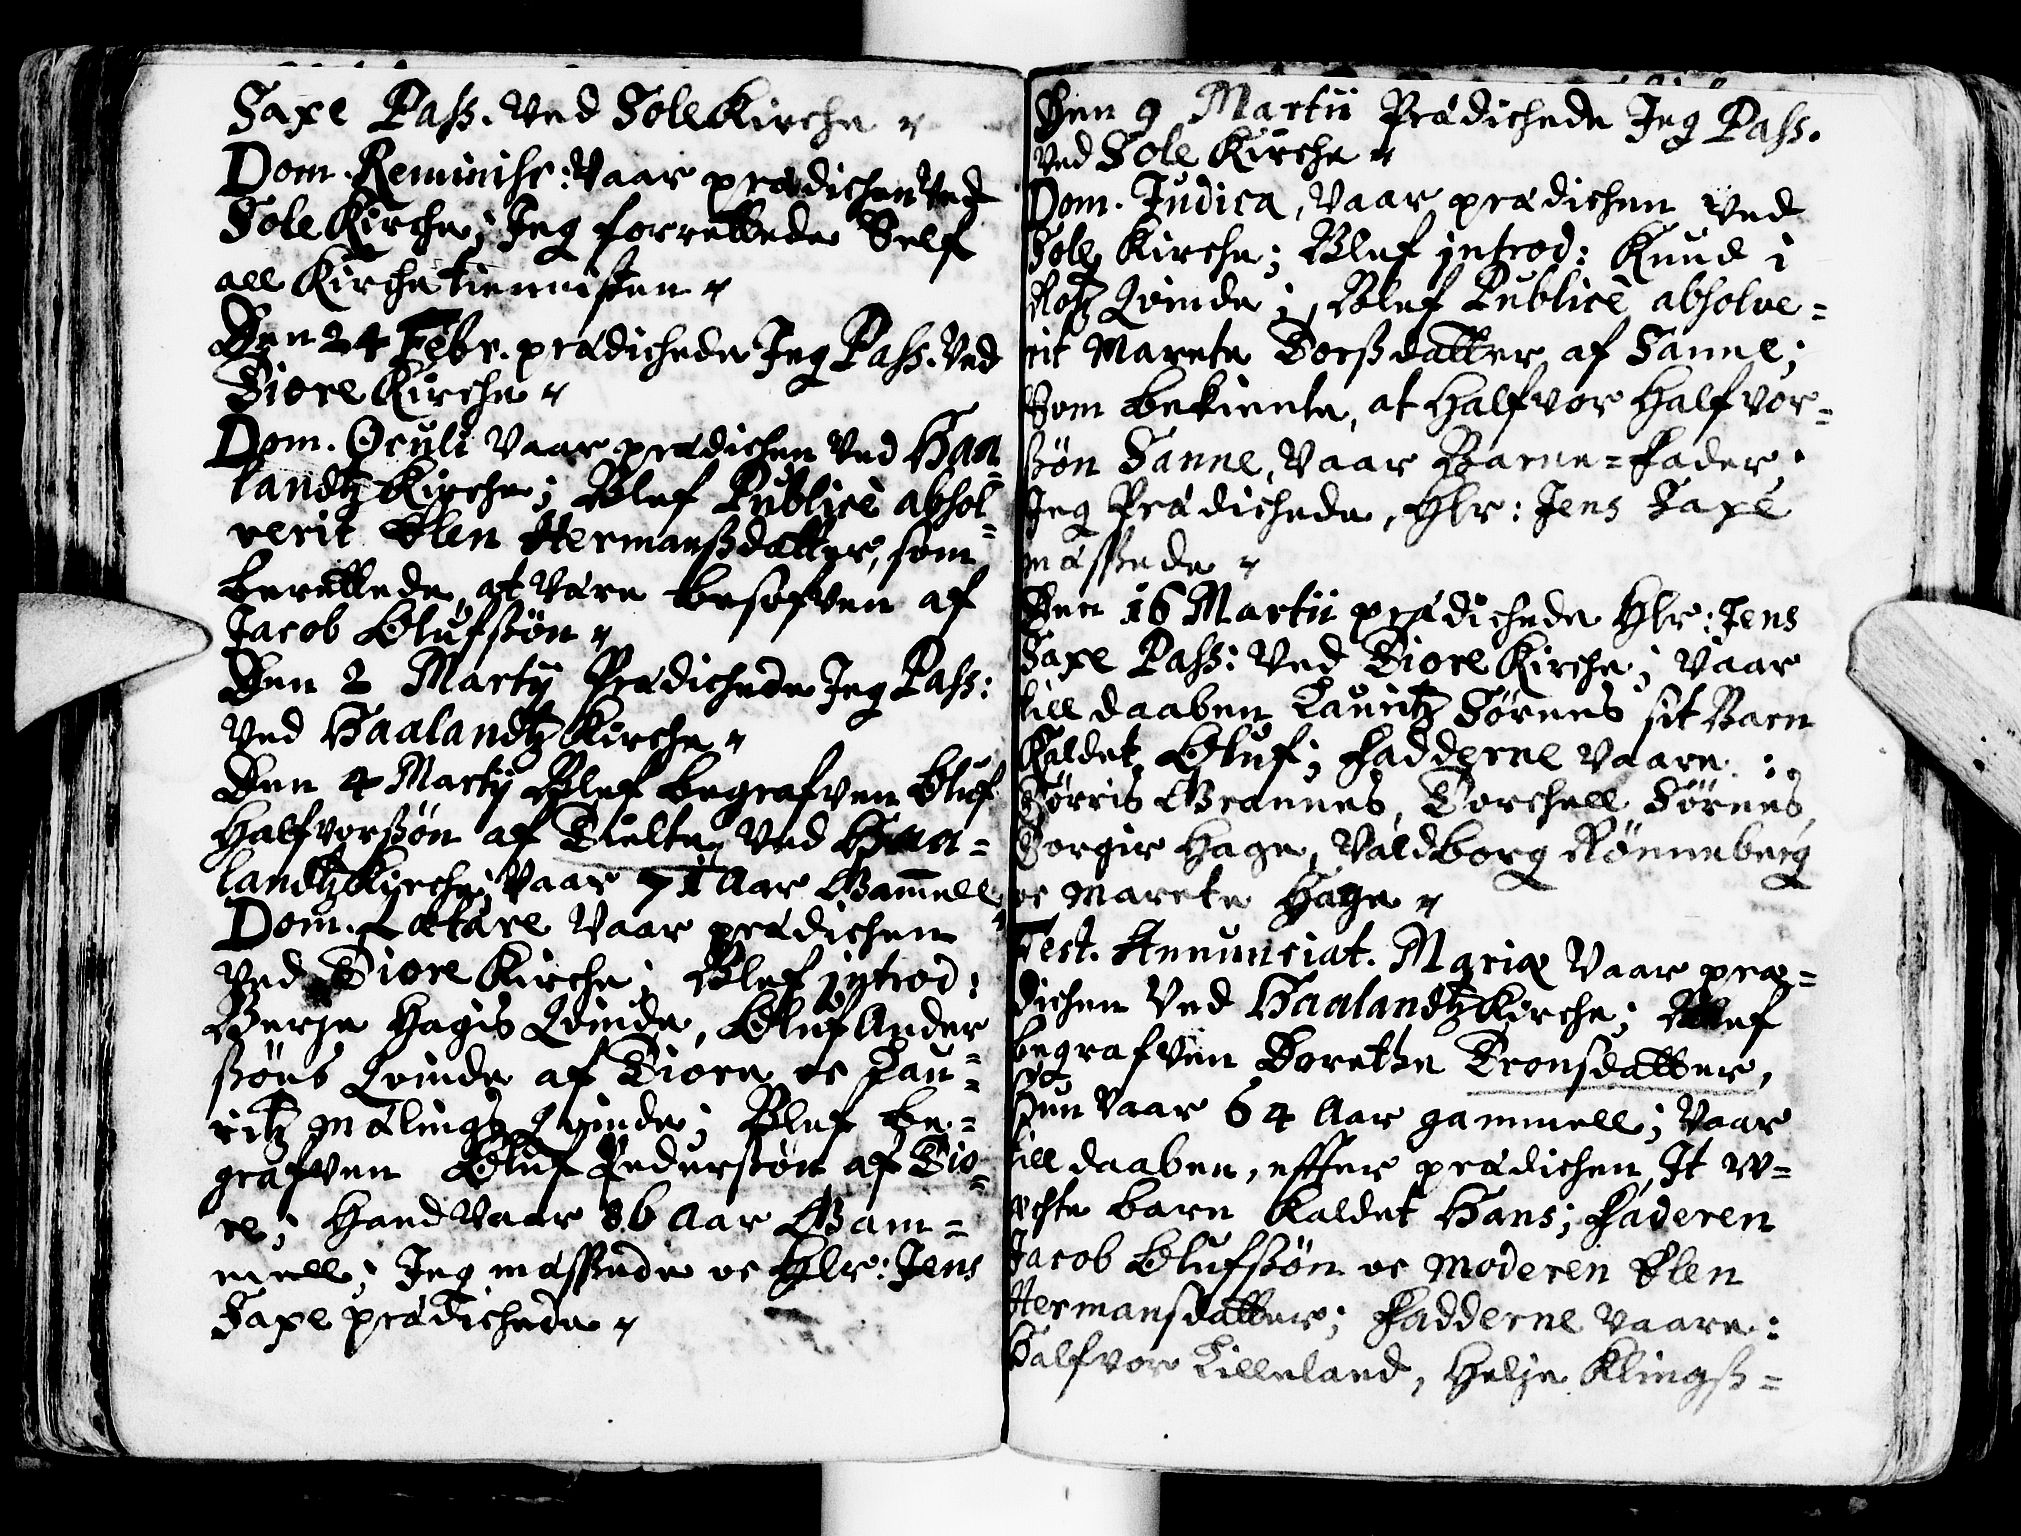 Saxe Pass. Ved Sole Kirche
Dom. Reminisc: Vaar prædichen Ved
Sole Kirche; Jeg forrettede Self
all Kirche tiennisten
Den 24 Febr. prædichede Jeg Pass. Ved
Tiore Kirche
Dom. Oculi Vaar prædichen Ved Haa
landtz Kirche; Blef Publicè absol-
verit Elen Hermanßdatter, som
berettede at Være besofven af
Jacob Olufsøn
Den 2 Martij Prædichede Jeg Pass:
Ved Haalandtz Kirche
Den 4 Martij Blef begrafven Oluf
Halfvorßøn af Tielte Ved Haa-
landtz Kirche; Vaar 71 Aar Gammell
Dom. Lætare Vaar prædichen
Ved Tiore Kirche; Blef introd:
Berje Hagis Qvinde, Oluf Ander
ßøns Qvinde af Tiore oc Lau-
ritz Mælingz Qvinde; Blef be-
grafven Oluf Pederßøn af Tio-
re; Hand Vaar 86 Aar Gam-
mell; Jeg mæssede oc Hlr: Jens
Saxe prædichede
Den 9 Martii Prædichede Jeg Pass.
Ved Sole Kirche
Dom. Judica, Vaar prædichen Ved
Sole Kirche; Blef introd: Knud i
Qvinde; Blef Publicè absolve-
rit Marete Torßdatter af Sanne;
Som bekiente, at Halfvor Halfvor-
ßøn Sanne, Vaar Barne-Fader;
Jeg Prædichede, Hlr: Jens Saxe
mæssede
Den 16 Martii prædichede Hlr: Jens
Saxe Pass: Ved Tiore Kirche; Vaar
till daaben Lauritz Sørnes sit Barn
Kaldet Oluf; Fadderne Vaare:
Børris Grannes, Torchell Sørnes,
Torgir Hage, Valdborg Rønneberg
oc Marete Hage
Fest. Annunciat. Mariæ Vaar præ-
dichen Ved Haalandtz Kirche; Blef
begrafven Dorethe Tronsdatter,
Hun Vaar 64 Aar gammell; Vaar
till daaben, effter prædichen, It w-
ægte barn kaldet Hans; Faderen
Jacob Olufsøn oc Moderen Elen
Hermansdatter; Fadderne Vaare:
Halfvor Lilleland, Helje Klingß-